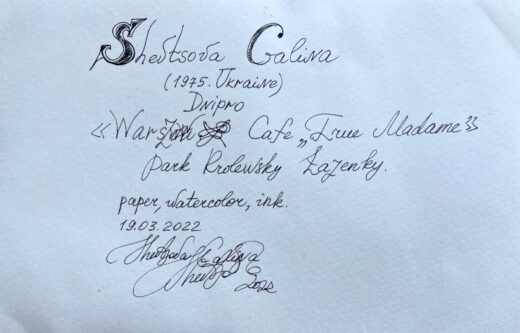 Shevtsova Galina
(1975. Ukraine)
Dnipro
«Warszaw Cafe „True Madame”»
Park Krolewsky Łazenky.
paper, watercolor, ink.
19.03.2022
Shevtsova Galina
Shevtso 2022